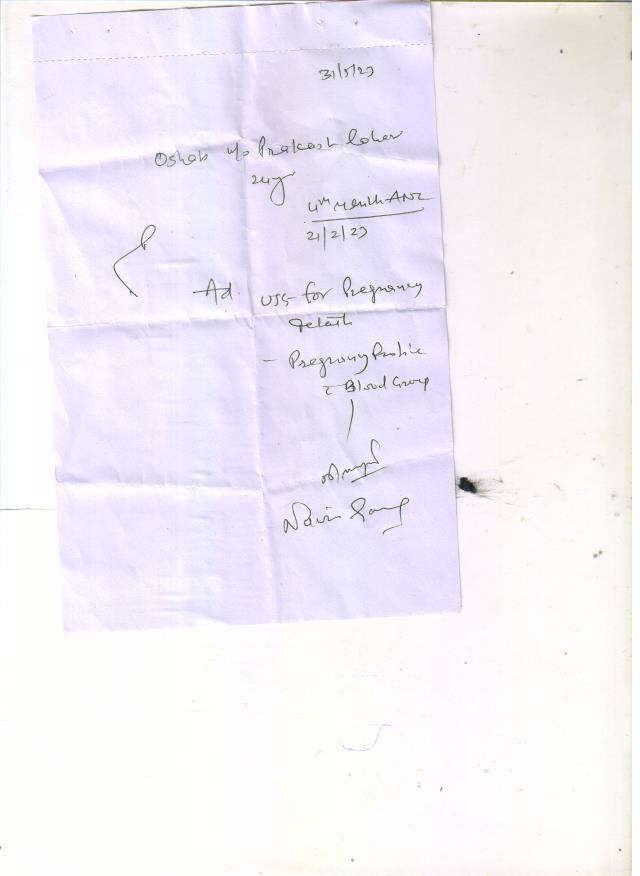 31/5/23
Oshab w/o Prakash Lohar
24yr
4th Month ANC
21/2/23
Ad. USG for Pregnancy
details
- Pregnancy Profile
c Blood Group
Navin Garg